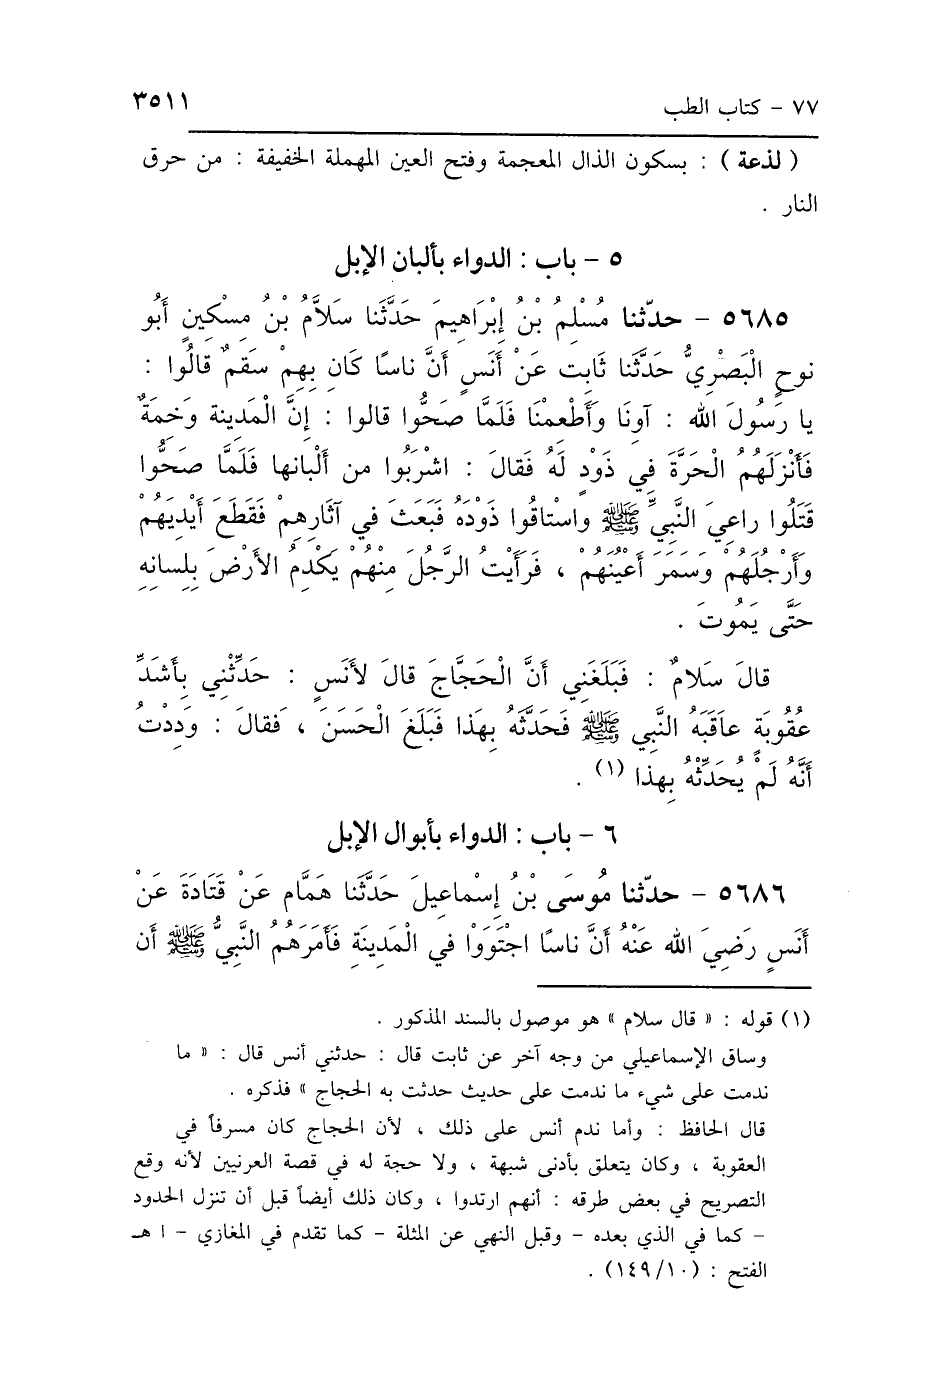 ٧٧ - كتاب الطب ٣٥١١
( لذعة ) : بسكون الذال المعجمة وفتح العين المهملة الخفيفة : من حرق
النار .
٥ - باب : الدواء بألبان الإبل
٥٦٨٥ - حدّثنا مُسْلِمُ بْنُ إِبْرَاهِيمَ حَدَّثَنا سَلاَّمُ بْنُ مِسْكِينٍ أَبُو
نوحٍ الْبَصْرِيُّ حَدَّثَنا ثَابِت عَنْ أَنَسٍ أَنَّ ناسًا كَانَ بِهِمْ سَقَمٌ قالُوا :
يا رَسُولَ الله : آونَا وَأَطْعِمْنَا فَلَمَّا صَحُّوا قالوا : إِنَّ الْمَدينة وَخمَةٌ
فَأَنْزَلَهُمُ الْحَرَّةَ فِي ذَوْدٍ لَهُ فَقالَ : اشْرَبُوا من أَلْبانها فَلَمَّا صَحُّوا
قَتَلُوا راعِيَ النَّبِيِّ ﷺ واستاقُوا ذَوْدَهُ فَبَعَثَ في آثارِهِمْ فَقَطَعَ أَيْدِيَهُمْ
وَأَرْجُلَهُمْ وَسَمَرَ أَعْيُنَهُمْ ، فَرَأَيْتُ الرَّجُلَ مِنْهُمْ يَكْدِمُ الأَرْضَ بِلِسانِهِ
حَتَّى يَمُوتَ .
قالَ سَلامٌ : فَبَلَغَنِي أَنَّ الْحَجَّاجَ قالَ لأَنَسٍ : حَدِّثْنِي بِأَشَدِّ
عُقُوبَةٍ عاقَبَهُ النَّبِي ﷺ فَحَدَّثَهُ بِهَذا فَبَلَغَ الْحَسَنَ ، فَقالَ : وَدِدْتُ
أَنَّهُ لَمْ يُحَدِّثْهُ بِهذا (١) .
٦ - باب : الدواء بأبوال الإبل
٥٦٨٦ - حدّثنا مُوسَى بْنُ إِسْماعِيلَ حَدَّثَنا هَمَّام عَنْ قَتَادَةَ عَنْ
أَنَسٍ رَضِيَ الله عَنْهُ أَنَّ ناسًا اجْتَوَوْا فِي الْمَدِينَةِ فَأَمَرَهُمُ النَّبِيُّ ﷺ أَن
(١) قوله : « قال سلام » هو موصول بالسند المذكور .
وساق الإسماعيلي من وجه آخر عن ثابت قال : حدثني أنس قال : « ما
ندمت على شيء ما ندمت على حديث حدثت به الحجاج » فذكره .
قال الحافظ : وأما ندم أنس على ذلك ، لأن الحجاج كان مسرفاً في
العقوبة ، وكان يتعلق بأدنى شبهة ، ولا حجة له في قصة العرنيين لأنه وقع
التصريح في بعض طرقه : أنهم ارتدوا ، وكان ذلك أيضاً قبل أن تنزل الحدود
- كما في الذي بعده - وقبل النهي عن المثلة - كما تقدم في المغازي - ا هـ
الفتح : (١٤٩/١٠) .